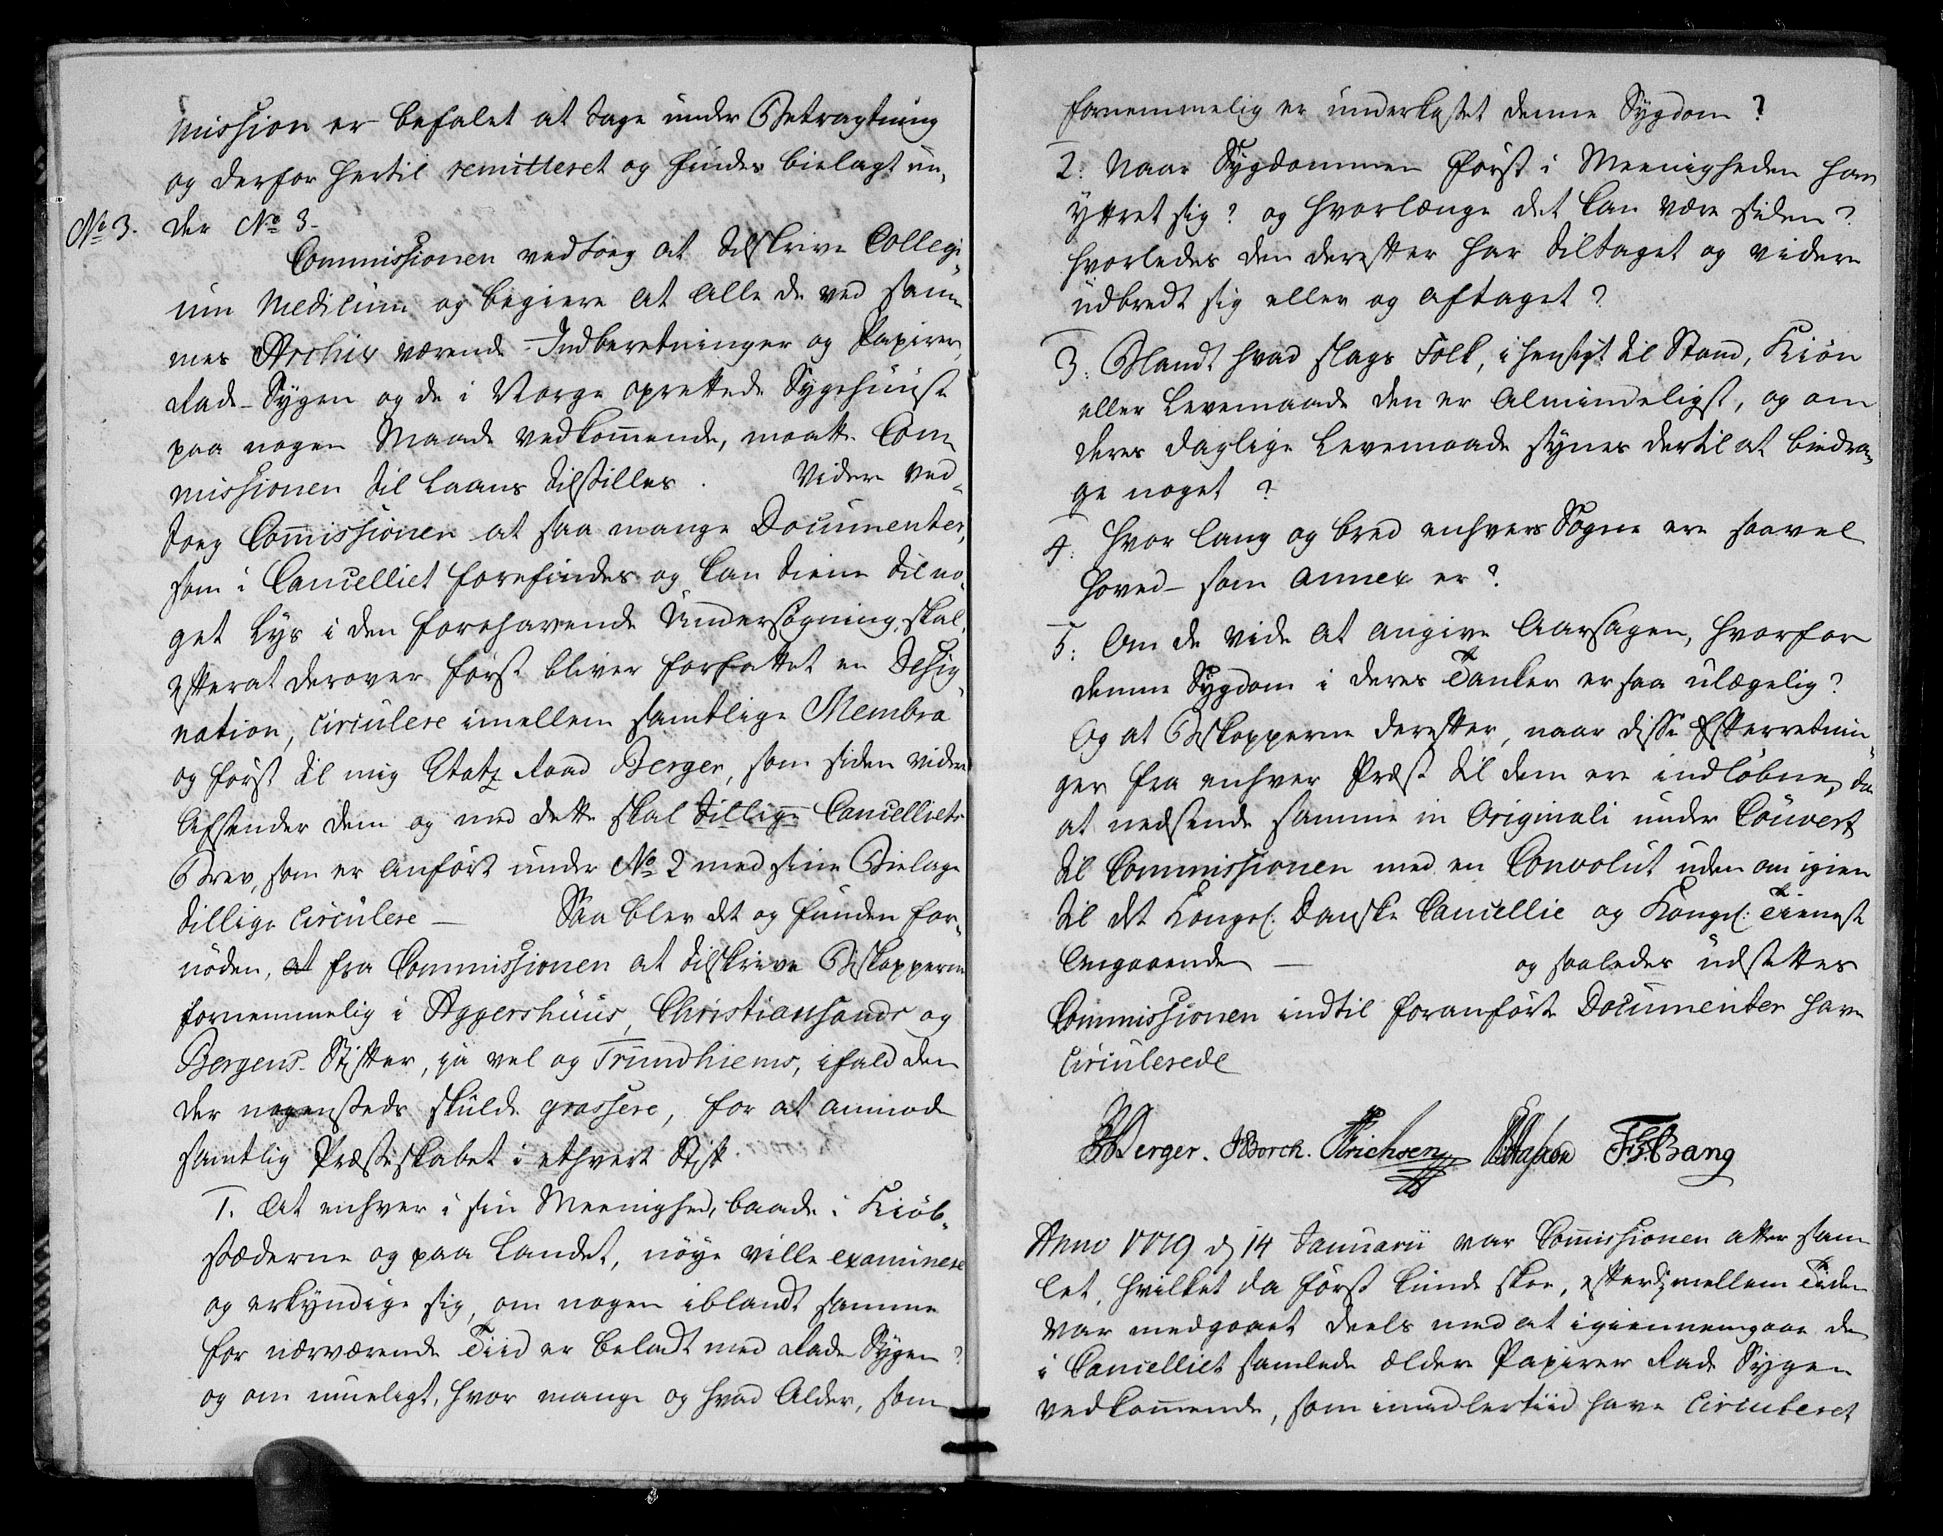 mission er befalet at tage under Betragtning
og derfor hertil remitteret og findes bielagt un-
No 3. der No 3.
Commissionen vedtoeg at tilskrive Collegi-
um Medicum og begiere at alle de ved sam-
mes Archiv værende Indberetninger og Papirer,
Rade-Sygen og de i Norge oprettede Sygehuuse
paa nogen Maade vedkommende, maatte Com-
missionen til Laans tilstilles. Videre ved-
toeg Commissionen at saa mange Documenter,
som i Cancelliet forefindes og kan tiene til no-
get Lys i den forehavende Undersøgning, skal,
efterat derover først bliver forfattet en Desig-
nation, circulere imellem samtlige Membra
og først til mig Etatz Raad Berger, som siden videre
afsender dem og med dette skal tillige Cancelliets
Brev, som er anført under No 2 med sine Bielage
tillige circulere — Saa blev det og funden for-
nøden, at fra Commissionen at tilskrive Biskopperne
fornemmelig i Aggershuus, Christiansands og
Bergens Stifter, ja vel og Trundhiems, ifald den
der nogensteds skulde grassere, for at anmode
samtlig Præsteskabet i ethvert Stift
1. At enhver i sin Meenighed, baade i Kiøb-
stæderne og paa Landet, nøye ville examinere
og erkyndige sig, om nogen iblandt samme
for nærværende Tiid er beladt med Rade Sygen?
og om mueligt, hvor mange og hvad Alder, som
fornemmelig er underkastet denne Sygdom?
2. Naar Sygdommen først i Meenigheden har
yttret sig? og hvorlænge det kan være siden?
hvorledes den derefter har tiltaget og videre
udbredt sig eller og aftaget?
3. Blandt hvad slags Folk, i henseigt til Stand, Kiøn
eller Levemaade den er almindeligst, og om
deres daglige Levemaade synes dertil at bidra-
ge noget?
4. Hvor lang og bred enhvers Sogne ere saavel
Hoved- som Annex er?
5. Om de vide at angive Aarsagen, hvorfor
denne Sygdom i deres Tanker er saa ulægelig?
Og at Biskopperne derefter, naar disse Efterretnin-
ger fra enhver Præst til dem ere indløbne, da
at nedsende samme in Originali under Couvert
til Commissionen med en Convolut uden om igien
til det Kongel: Danske Cancellie og Kongel: Tieneste
Angaaende — og saaledes udsettes
Commissionen indtil foranførte Documenter have
circulerede
Berger. Borch. Erichsen FL Bang
Anno 1779 d 14 Januarii var Commissionen atter sam-
let, hvilket da først kunde skee, efterdj mellem Tiden
var medgaaet deels med at igiennemgaae de
i Cancelliet samlede ældre Papirer Rade Sygen
vedkommende, som imidlertiid have circuleret